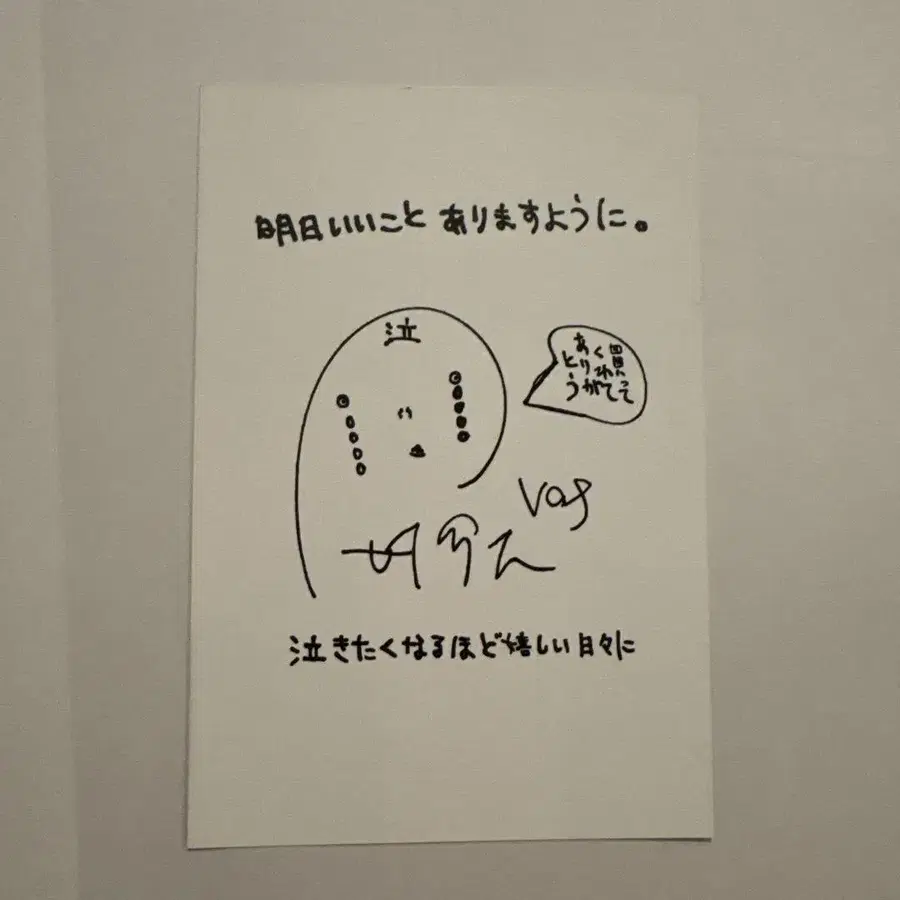 明日いいこと ありますように。
泣
買って
くれて
ありが
とう
Vo.
泣きたくなるほど嬉しい日々に